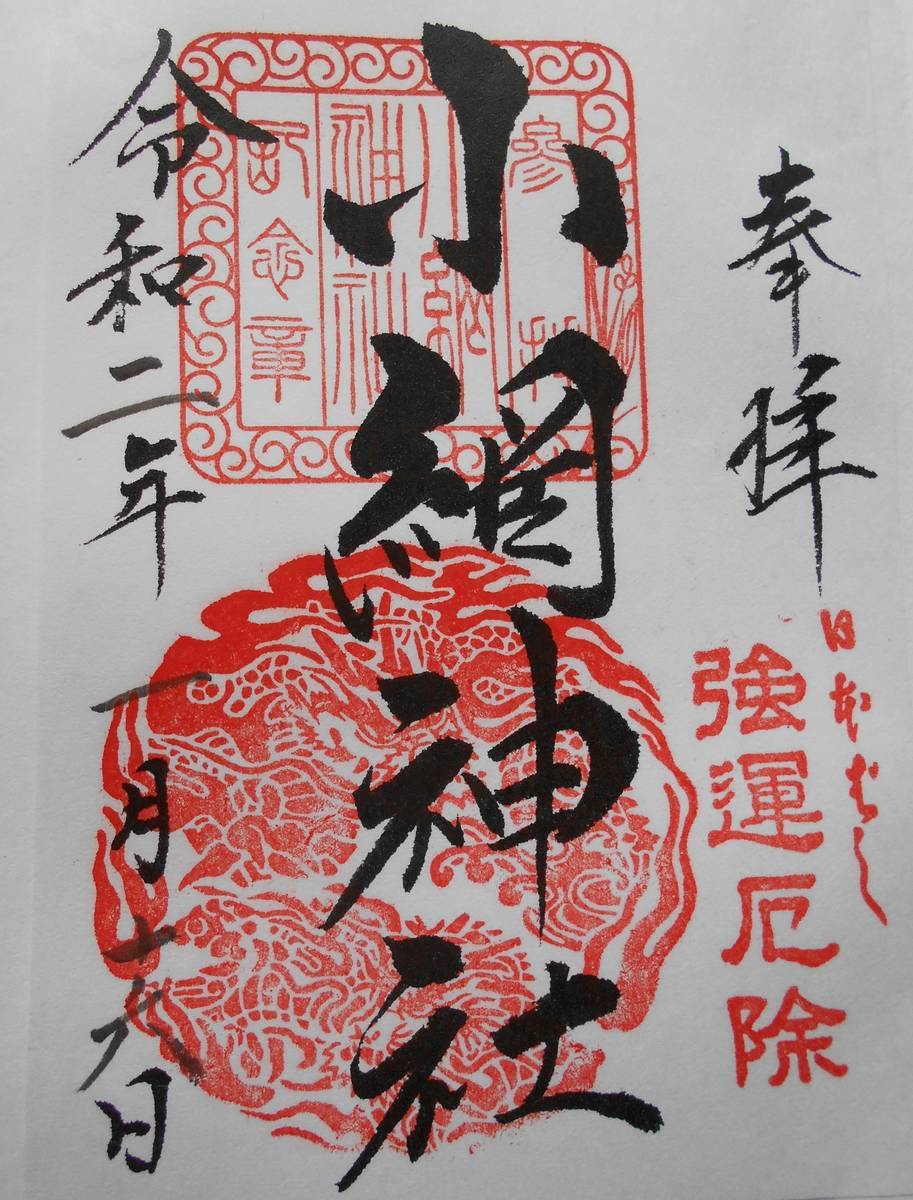 奉拝
日本ばし
強運厄除
小網神社
参拝
小網神社
記念章
令和二年一月十六日